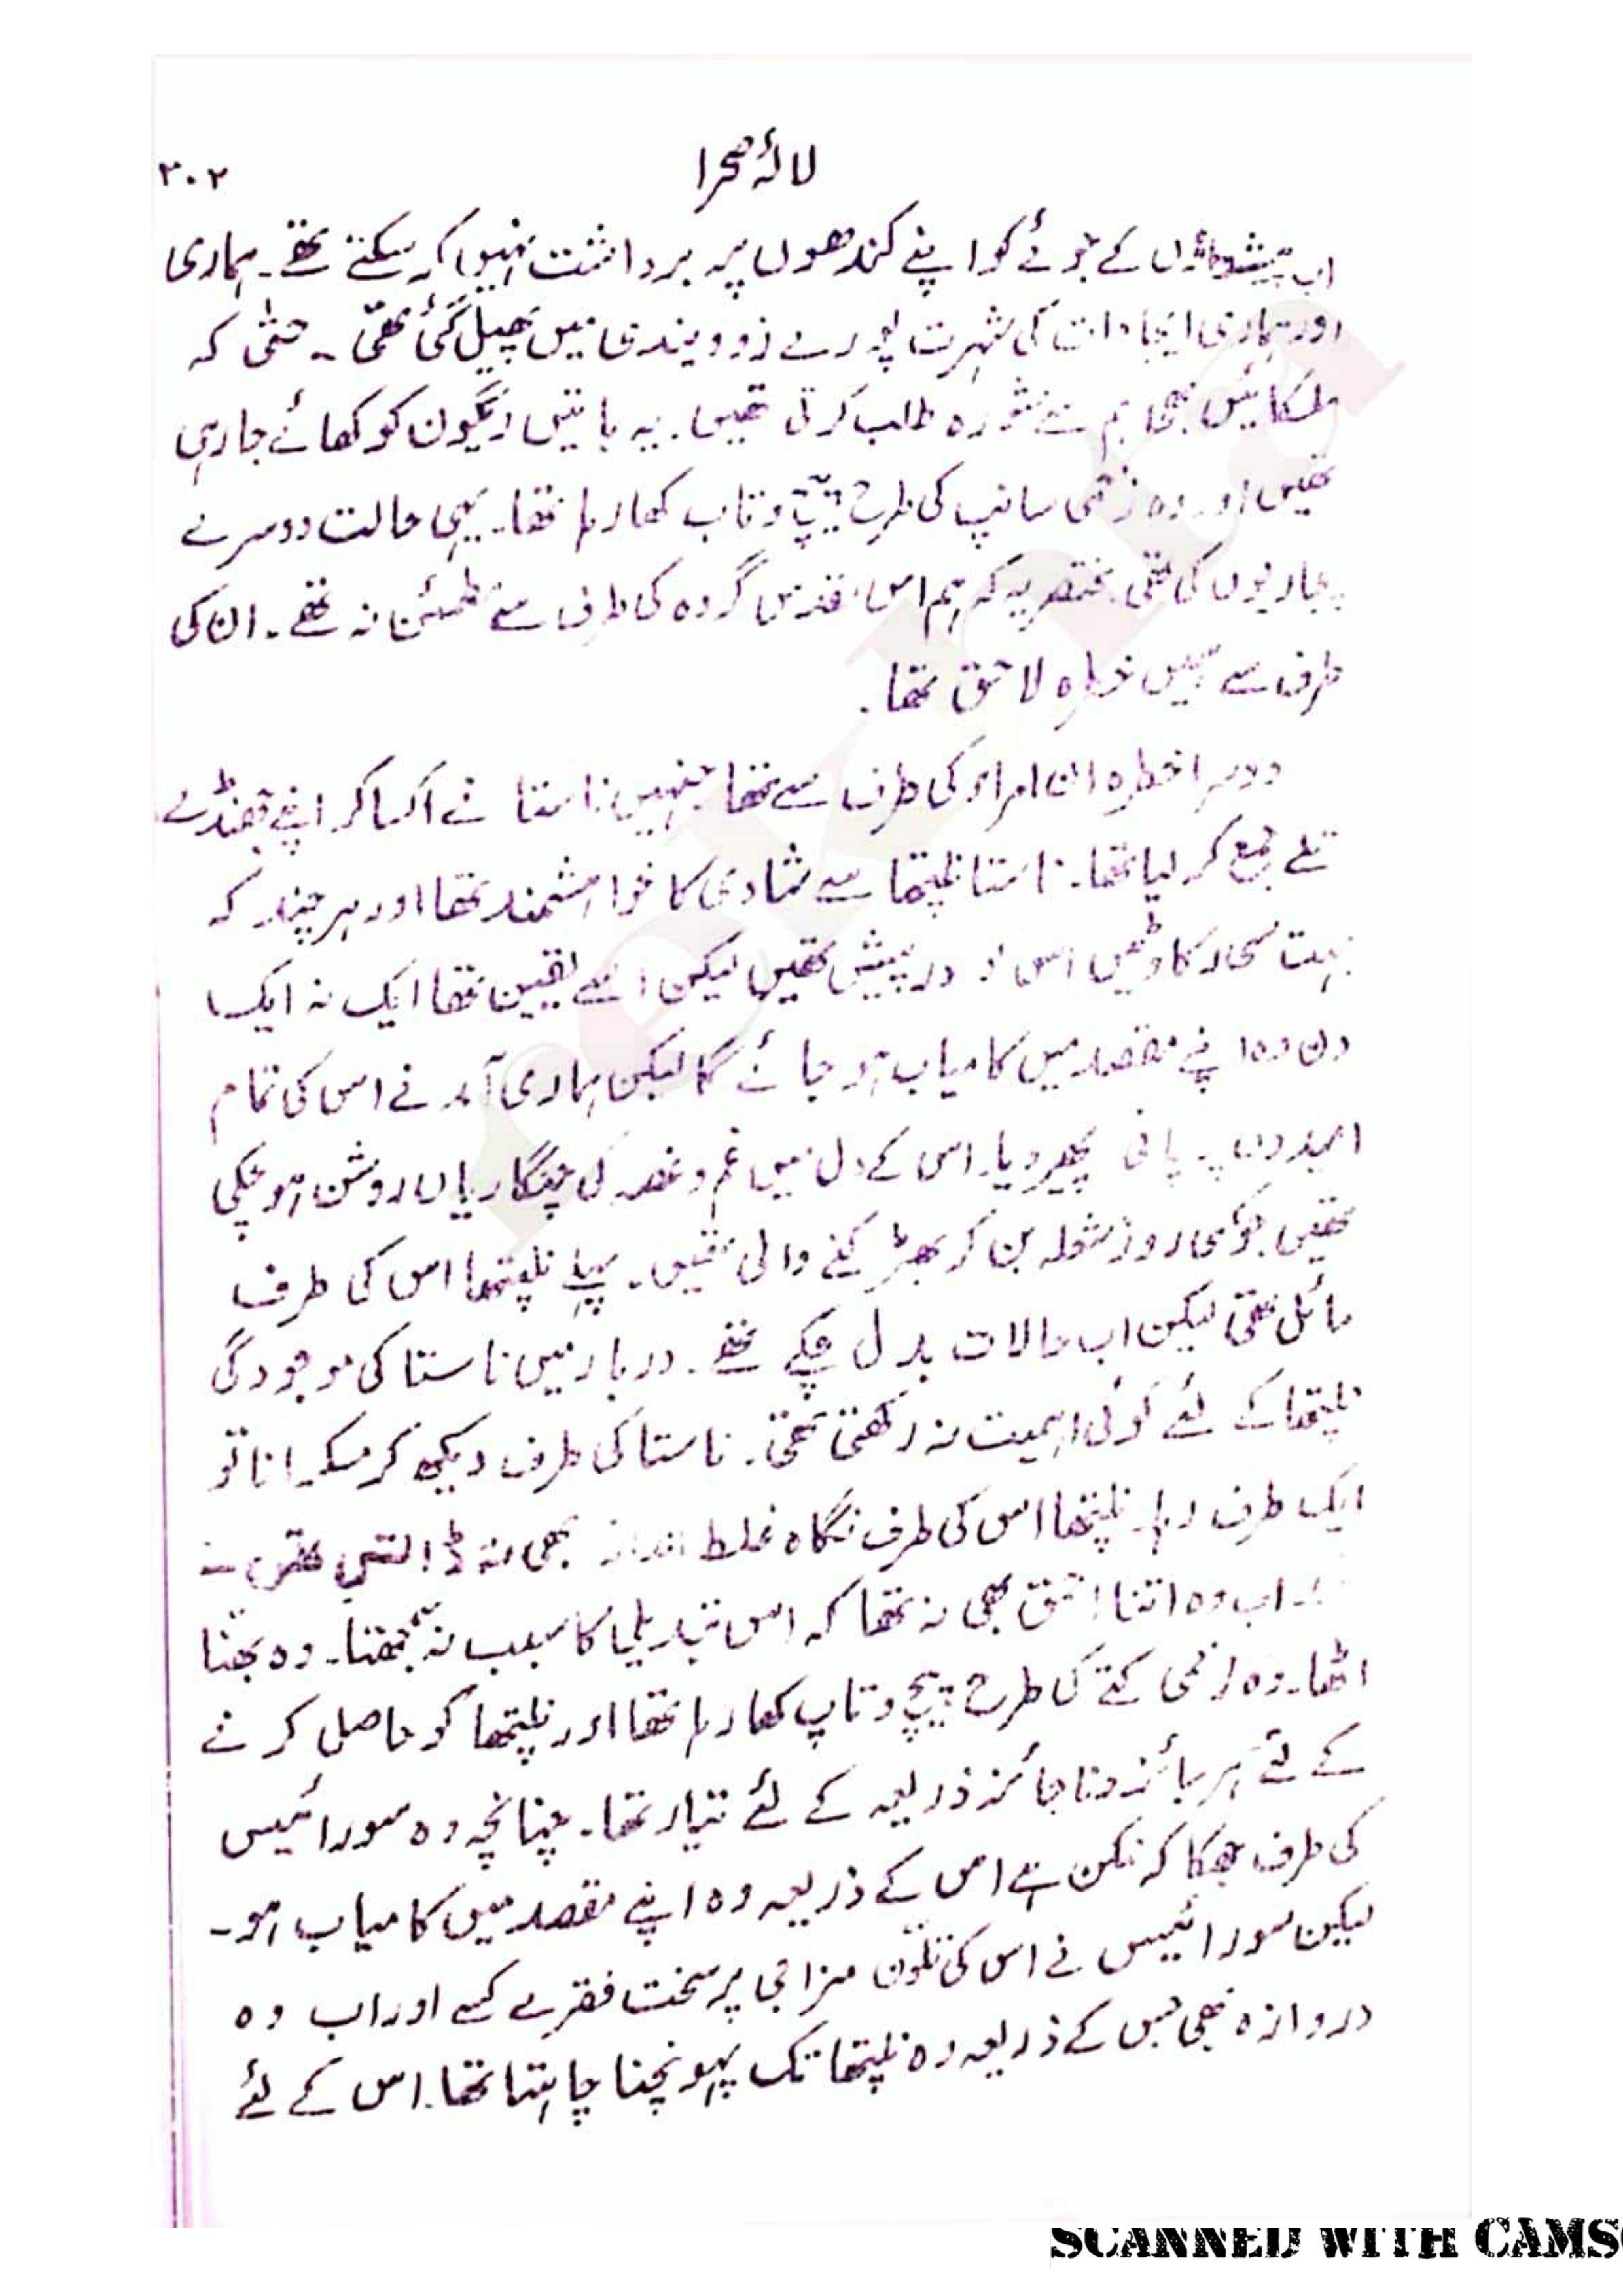 لالۂ صحرا
۳۰۲
اب پیشواؤں کے جوئے کو اپنے کندھوں پر برداشت نہیں کر سکتے تھے۔ ہماری
اور ہماری ایجادات کی شہرت پورے زوویندی میں پھیل گئی تھی۔ حتٰی کہ
ملکائیں بھی ہم سے مشورہ طلب کرتی تھیں۔ یہ باتیں اگون کو کھائے جا رہی
تھیں اور وہ زخمی سانپ کی طرح پیچ و تاب کھا رہا تھا۔ یہی حالت دوسرے
پجاریوں کی تھی مختصر یہ کہ ہم اس مقدس گروہ کی طرف سے مطمئن نہ تھے۔ ان کی
طرف سے ہمیں خطرہ لاحق تھا۔
دوسرا خطرہ ان امراء کی طرف سے تھا جنہیں ناستا نے اکسا کر اپنے جھنڈے
تلے جمع کر لیا تھا۔ ناستا نلپتھا سے شادی کا خواہشمند تھا اور ہر چند کہ
بہت سی رکاوٹیں اس درپیش تھیں لیکن اسے یقین تھا ایک نہ ایک
دن وہ اپنے مقصد میں کامیاب ہو جائے گا لیکن ہماری آمد نے اس کی تمام
امیدوں پر پانی پھیر دیا۔ اس کے دل میں غم و غصہ کی چنگاریاں روشن ہو چکی
تھیں جو کسی روز شعلہ بن کر بھڑکنے والی تھیں۔ پہلے نلپتھا اس کی طرف
مائل تھی لیکن اب حالات بدل چکے تھے۔ دربار میں ناستا کی موجودگی
نلپتھا کے لئے کوئی اہمیت نہ رکھتی تھی۔ ناستا کی طرف دیکھ کر مسکرانا تو
ایک طرف رہا۔ نلپتھا اس کی طرف نگاہ غلط انداز بھی نہ ڈالتی تھی۔
اب وہ اتنا احمق بھی نہ تھا کہ اس تبدیلی کا سبب نہ سمجھتا۔ وہ بھنا
اٹھا۔ وہ زخمی کتے کی طرح پیچ و تاپ کھا رہا تھا اور نلپتھا کو حاصل کرنے
کے لئے ہر جائز و ناجائز ذریعہ کے لئے تیار تھا۔ چنانچہ وہ سورائیس
کی طرف جھکا کہ ممکن ہے اس کے ذریعہ وہ اپنے مقصد میں کامیاب ہو۔
لیکن سورائیس نے اس کی تلون مزاجی پر سخت فقرے کسے اور اب وہ
دروازہ بھی جس کے ذریعہ وہ نلپتھا تک پہونچنا چاہتا تھا۔ اس کے لئے
SCANNED WITH CAMS